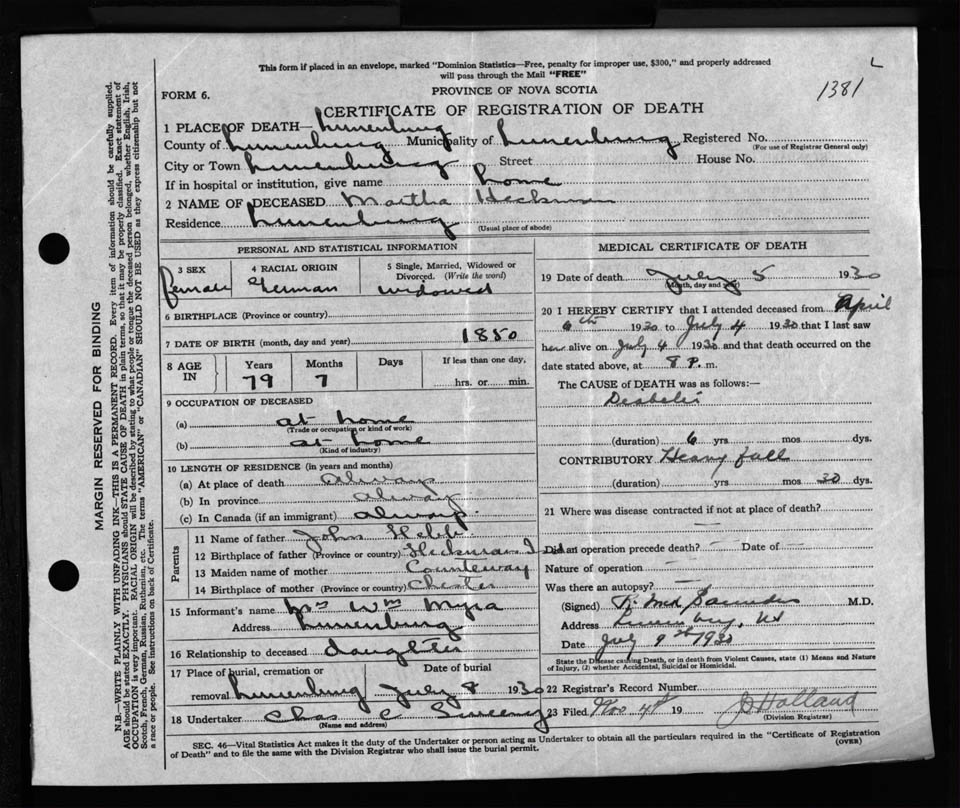 This form if placed in an envelope, marked "Dominion Statistics—Free, penalty for improper use, $300," and properly addressed
will pass through the Mail "FREE"
L
1381
FORM 6.
PROVINCE OF NOVA SCOTIA
CERTIFICATE OF REGISTRATION OF DEATH
1 PLACE OF DEATH— Lunenburg
County of Lunenburg Municipality of Lunenburg Registered No.
(For use of Registrar General only)
City or Town Lunenburg Street House No.
If in hospital or institution, give name home
2 NAME OF DECEASED Martha Heckman
Residence Lunenburg
(Usual place of abode)
PERSONAL AND STATISTICAL INFORMATION
3 SEX 4 RACIAL ORIGIN 5 Single, Married, Widowed or
Divorced. (Write the word)
female German widowed
6 BIRTHPLACE (Province or country)
7 DATE OF BIRTH (month, day and year) 1850
8 AGE IN Years Months Days If less than one day,
79 7 hrs. or min.
9 OCCUPATION OF DECEASED
(a) at home
(Trade or occupation or kind of work)
(b) at home
(Kind of industry)
10 LENGTH OF RESIDENCE (in years and months)
(a) At place of death always
(b) In province alway
(c) In Canada (if an immigrant) always
Parents
11 Name of father John Hebb
12 Birthplace of father (Province or country) Heckmans Island
13 Maiden name of mother Counteway
14 Birthplace of mother (Province or country) Chester
15 Informant's name Mrs Wm Myra
Address Lunenburg
16 Relationship to deceased daughter
17 Place of burial, cremation or Date of burial
removal Lunenburg July 8 1930
18 Undertaker Chas C Sweeny
(Name and address)
MEDICAL CERTIFICATE OF DEATH
19 Date of death July 5 1930
(Month, day and year)
20 I HEREBY CERTIFY that I attended deceased from April
6th 1930 to July 4 1930 that I last saw
her alive on July 4 1930 and that death occurred on the
date stated above, at 8 P. m.
The CAUSE of DEATH was as follows:—
(duration) 6 yrs mos dys.
CONTRIBUTORY Heavy fall
(duration) yrs mos 30 dys.
21 Where was disease contracted if not at place of death?
Did an operation precede death? Date of
Nature of operation
Was there an autopsy?
(Signed) Saunders M.D.
Address Lunenburg, NS
Date July 9th 1930
State the Disease causing Death, or in death from Violent Causes, state (1) Means and Nature
of Injury, (2) whether Accidental, Suicidal or Homicidal.
22 Registrar's Record Number
23 Filed Nov 4th 19 Holland
(Division Registrar)
SEC. 46—Vital Statistics Act makes it the duty of the Undertaker or person acting as Undertaker to obtain all the particulars required in the "Certificate of Registration
of Death" and to file the same with the Division Registrar who shall issue the burial permit.
(OVER)
MARGIN RESERVED FOR BINDING
N.B.—WRITE PLAINLY WITH UNFADING INK—THIS IS A PERMANENT RECORD. Every item of information should be carefully supplied.
AGE should be stated EXACTLY. PHYSICIANS should STATE CAUSE OF DEATH in plain terms, so that it may be properly classified. Exact statement of
OCCUPATION is very important. RACIAL ORIGIN will be described by stating to what people or tongue the deceased person belonged, whether English, Irish,
Scotch, French, German, Russian, Ruthenian, etc. The terms "AMERICAN" or "CANADIAN" SHOULD NOT BE USED as they express citizenship but not
a race or people. See instructions on back of Certificate.